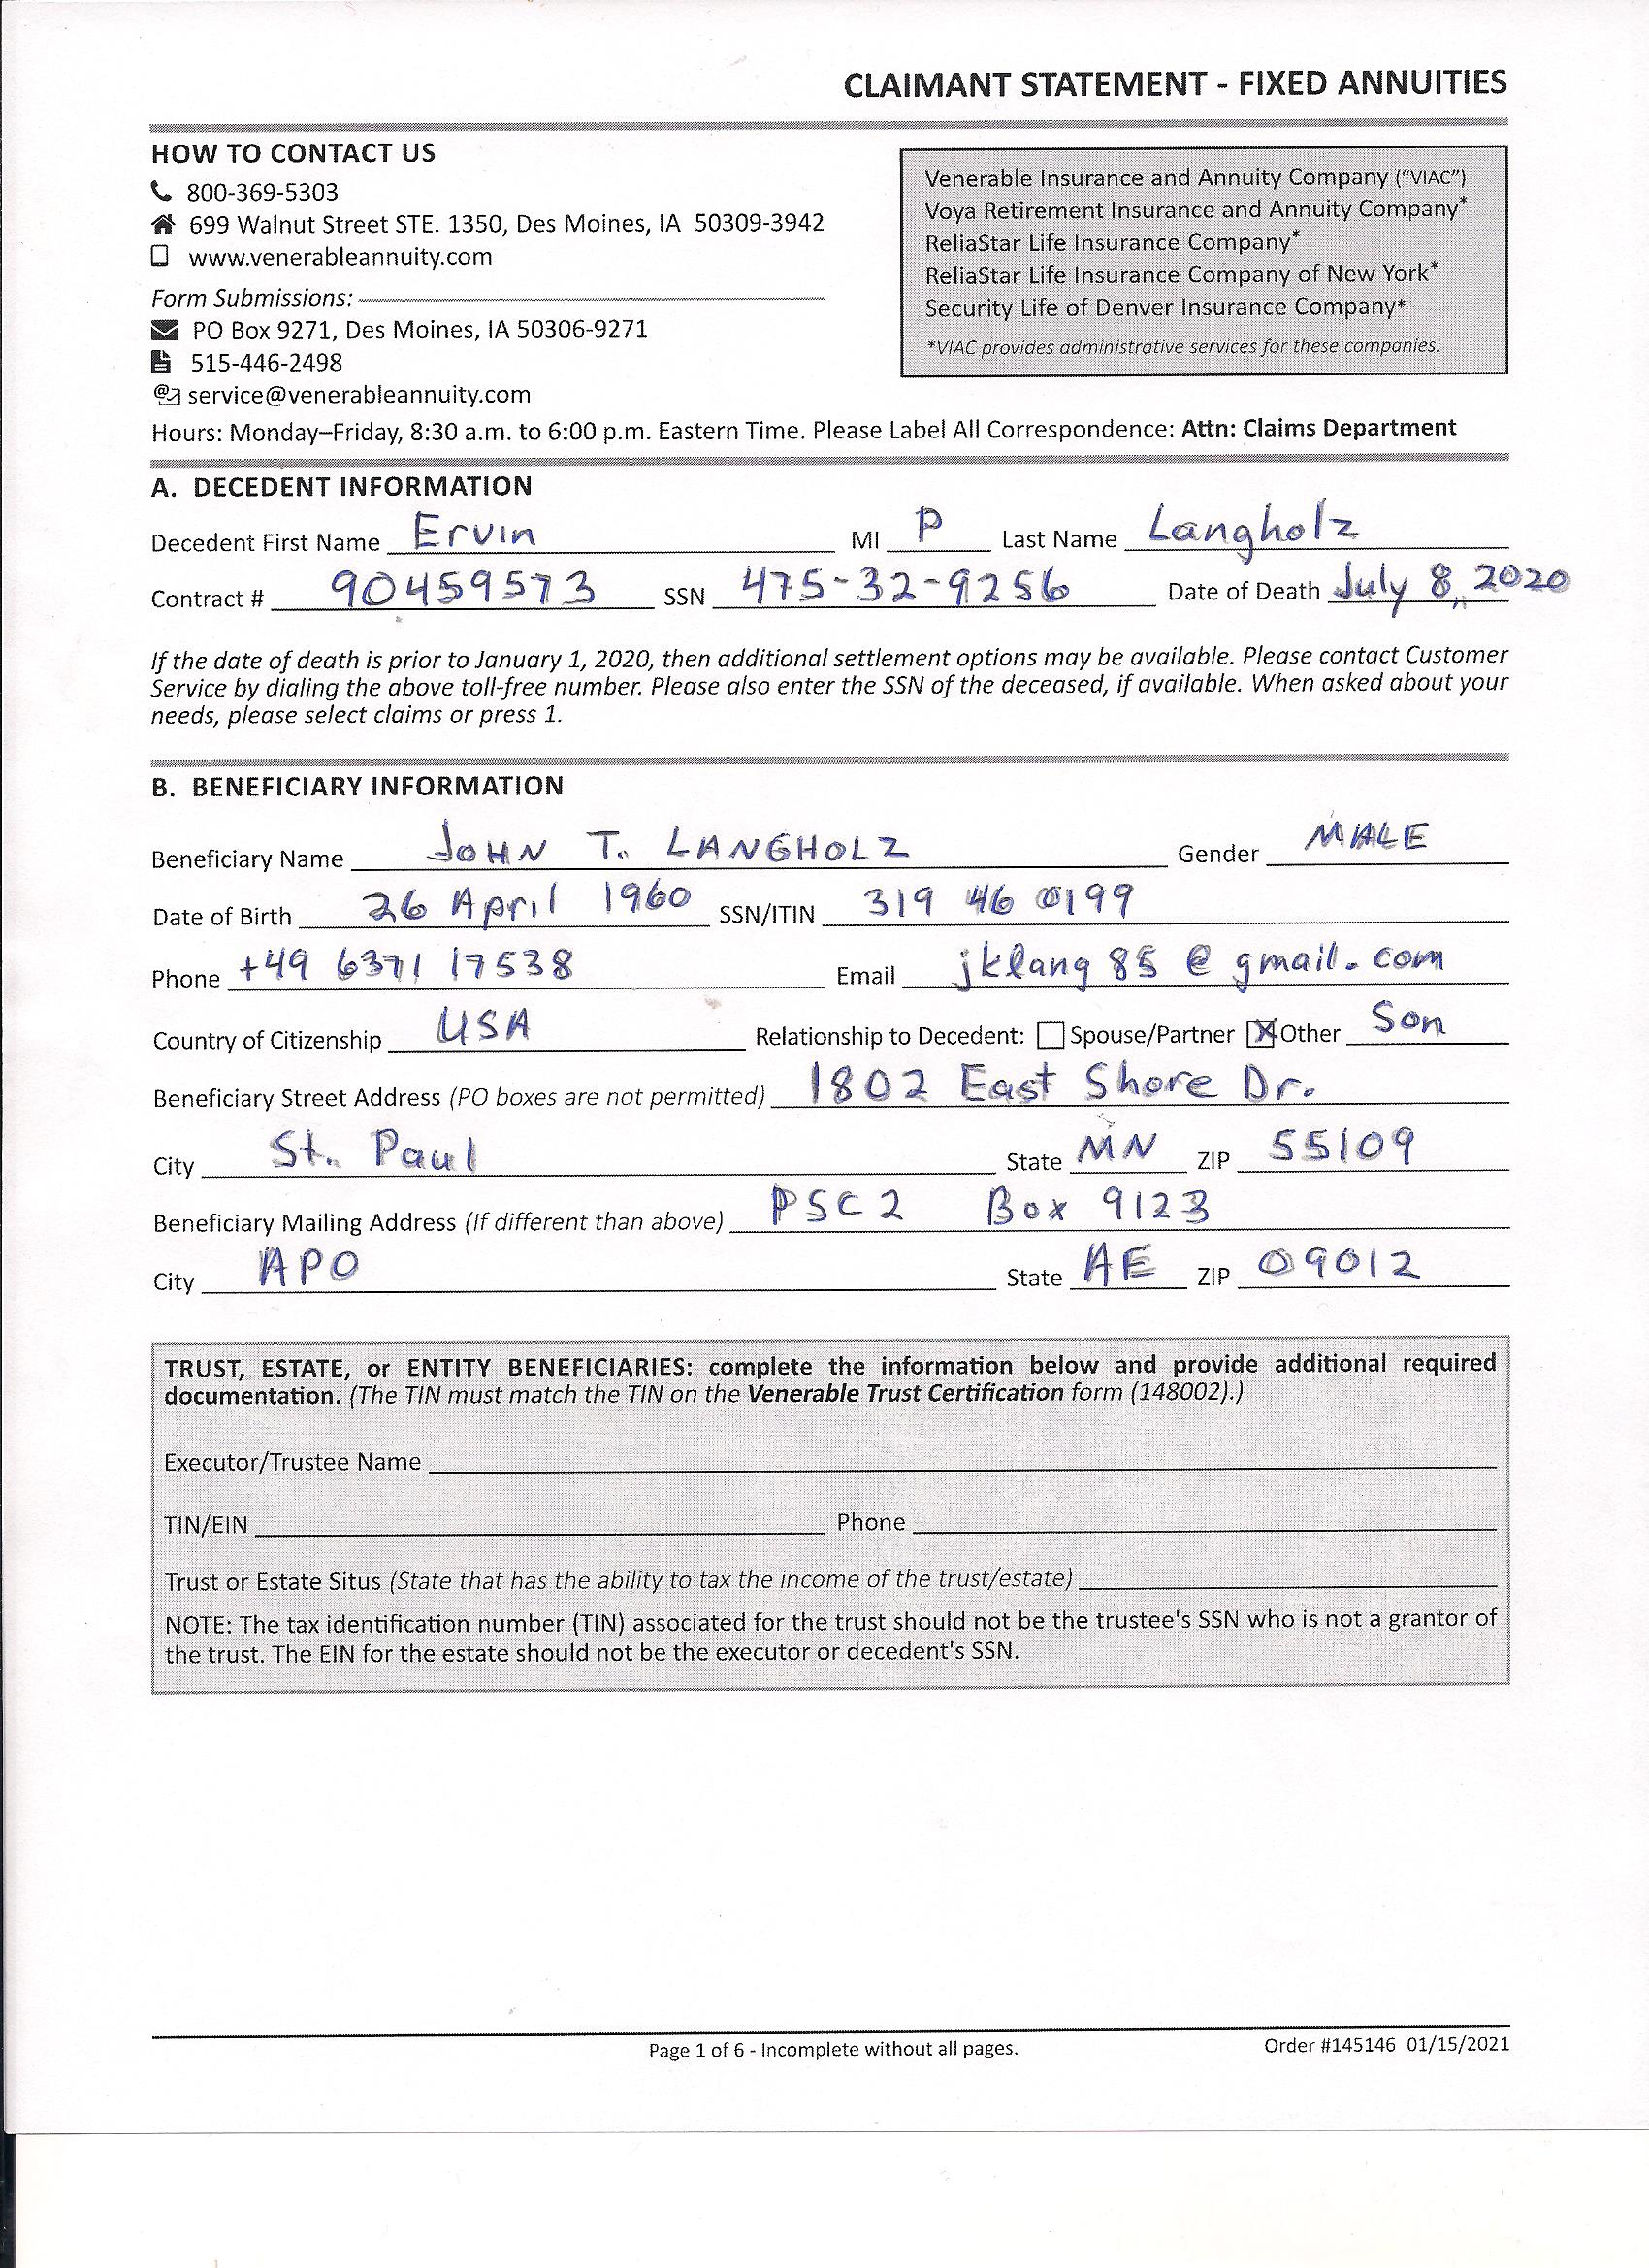 CLAIMANT STATEMENT - FIXED ANNUITIES
HOW TO CONTACT US
800-369-5303
699 Walnut Street STE. 1350, Des Moines, IA 50309-3942
www.venerableannuity.com
Form Submissions:
PO Box 9271, Des Moines, IA 50306-9271
515-446-2498
service@venerableannuity.com
Venerable Insurance and Annuity Company ("VIAC")
Voya Retirement Insurance and Annuity Company*
ReliaStar Life Insurance Company*
ReliaStar Life Insurance Company of New York*
Security Life of Denver Insurance Company*
*VIAC provides administrative services for these companies.
Hours: Monday–Friday, 8:30 a.m. to 6:00 p.m. Eastern Time. Please Label All Correspondence: Attn: Claims Department
A. DECEDENT INFORMATION
Decedent First Name Ervin MI P Last Name Langholz
Contract # 90459573 SSN 475-32-9256 Date of Death July 8, 2020
If the date of death is prior to January 1, 2020, then additional settlement options may be available. Please contact Customer
Service by dialing the above toll-free number. Please also enter the SSN of the deceased, if available. When asked about your
needs, please select claims or press 1.
B. BENEFICIARY INFORMATION
Beneficiary Name JOHN T. LANGHOLZ Gender MALE
Date of Birth 26 April 1960 SSN/ITIN 319 46 0199
Phone +49 6371 17538 Email jklang85@gmail.com
Country of Citizenship USA Relationship to Decedent: Spouse/Partner X Other Son
Beneficiary Street Address (PO boxes are not permitted) 1802 East Shore Dr.
City St. Paul State MN ZIP 55109
Beneficiary Mailing Address (If different than above) PSC 2 Box 9123
City APO State AE ZIP 09012
TRUST, ESTATE, or ENTITY BENEFICIARIES: complete the information below and provide additional required
documentation. (The TIN must match the TIN on the Venerable Trust Certification form (148002).)
Executor/Trustee Name
TIN/EIN Phone
Trust or Estate Situs (State that has the ability to tax the income of the trust/estate)
NOTE: The tax identification number (TIN) associated for the trust should not be the trustee's SSN who is not a grantor of
the trust. The EIN for the estate should not be the executor or decedent's SSN.
Page 1 of 6 - Incomplete without all pages.
Order #145146 01/15/2021